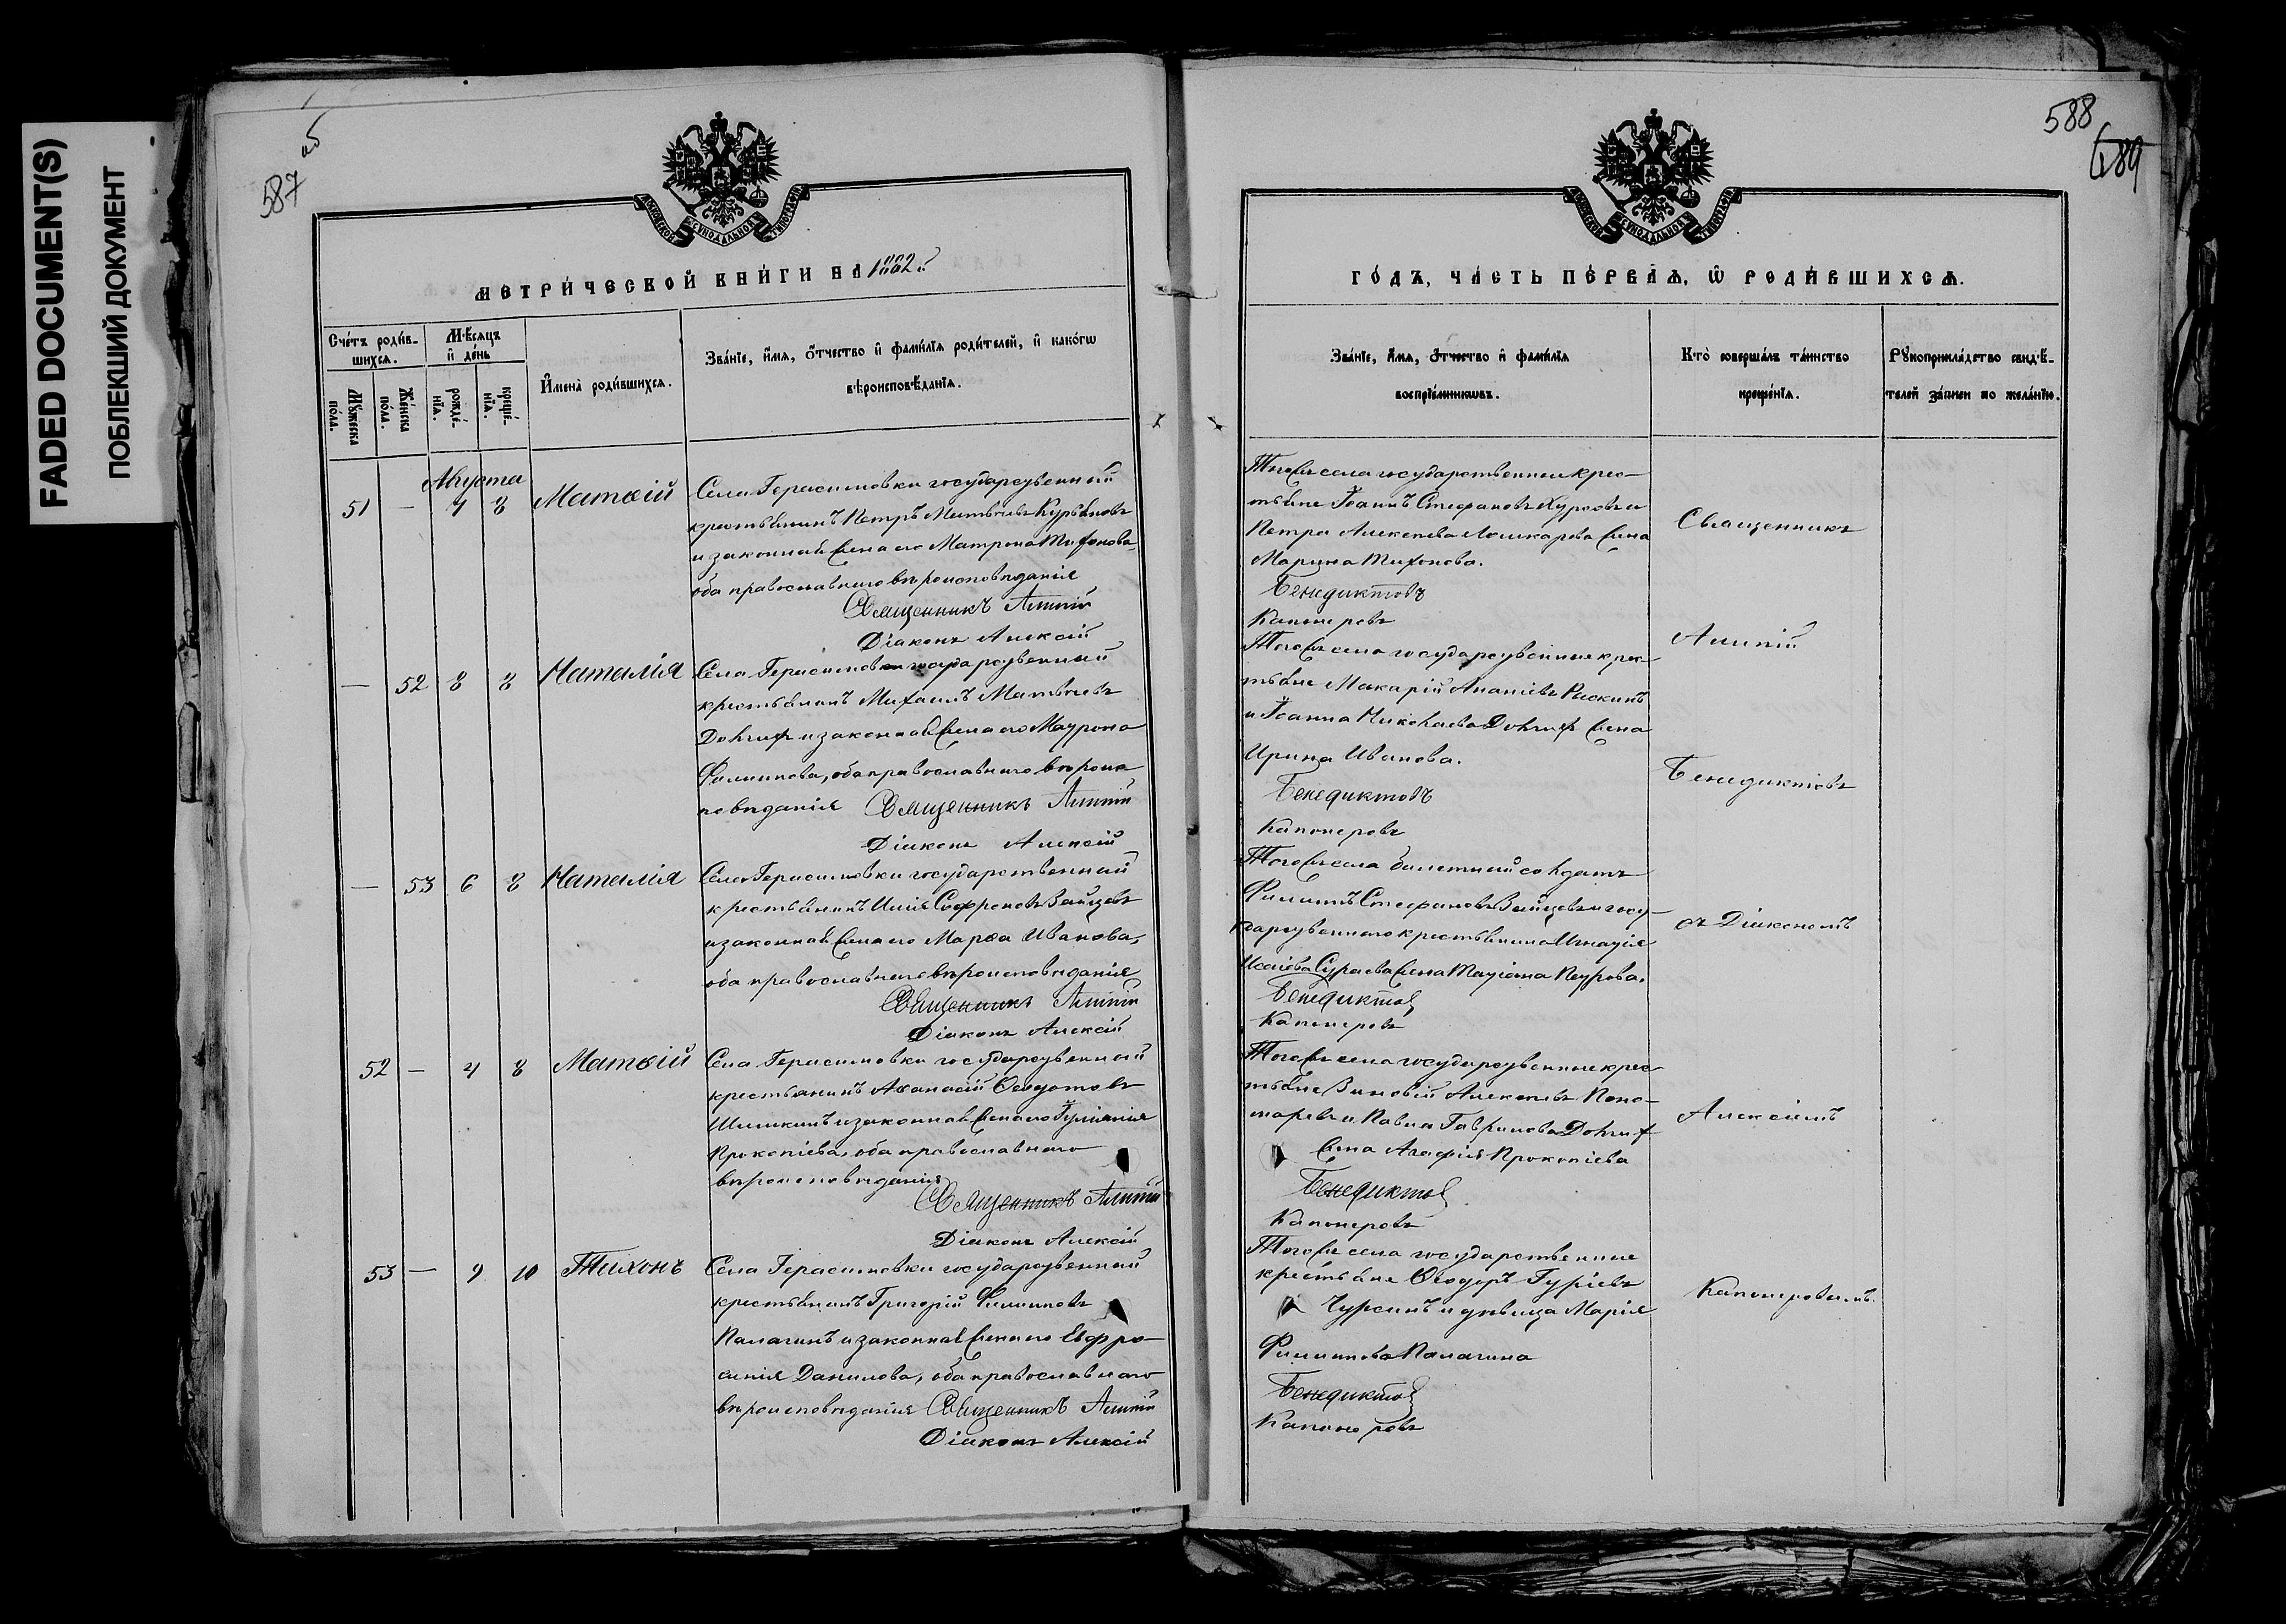 FADED DOCUMENT(S)
ПОБЛЕКШИЙ ДОКУМЕНТ
587 об
МЕТРИ́ЧЕСКОЙ КНИ́ГИ НА 1882й
Счетъ роди́в-
шихся.
Мѣсяцъ
и де́нь
Мꙋжеска
по́ла.
Же́нска
по́ла.
рожде́-
нїѧ.
креще́-
нїѧ.
Имена̀ роди́вшихсѧ.
Зва́нїе, и́мѧ, о́тчество и фами́лїѧ роди́телей, и како́гѡ
вѣроисповѣ́данїѧ.
Августа
51 — 4 8 Матѳій
Села Герасимовки государственный
крестьянинъ Петръ Матвѣевъ Курьяновъ
и законная жена его Матрона Тихонова
оба православнаго вѣроисповѣданія
Священникъ Алипій
Діаконъ Алексій
— 52 8 8 Наталія
Села Герасимовки государственный
крестьянинъ Михаилъ Матвѣевъ
Долгихъ и законная жена его Матрона
Филипова, оба православнаго вѣроис-
повѣданія Священникъ Алипій
Діаконъ Алексій
— 53 6 8 Наталія
Села Герасимовки государственный
крестьянинъ Илія Софроновъ Зайцевъ
и законная жена его Марѳа Иванова,
оба православнаго вѣроисповѣданія
Священникъ Алипій
Діаконъ Алексій
52 — 4 8 Матѳій
Села Герасимовки государственный
крестьянинъ Аѳанасій Ѳедотовъ
Шишкинъ и законная жена его Іуліанія
Прокопіева, оба православнаго
вѣроисповѣданія
Священникъ Алипій
Діаконъ Алексій
53 — 9 10 Тихонъ
Села Герасимовки государственный
крестьянинъ Григорій Филиповъ
Палагинъ и законная жена его Евфро-
синія Данилова, оба православнаго
вѣроисповѣданія Священникъ Алипій
Діаконъ Алексій
588
589
ГО́ДЪ, ЧА́СТЬ ПЕ́РВАѦ, Ѡ РОДИ́ВШИХСѦ.
Зва́нїе, и́мѧ, о́тчество и фами́лїѧ
воспрїе́мникѡвъ.
Кто̀ соверша́лъ та́инство
креще́нїѧ.
Рꙋкоприкла́дство свидѣ́-
телей за́писи по жела́нїю.
Того же села государственные крес-
тьяне Іоаннъ Стефановъ и
Петра Алексѣева жена
Марина Тихонова.
Бенедиктовъ
Капонеровъ
Того же села государственные крес-
тьяне Макарій Ананіевъ Рыскинъ
и Іоанна Николаева Долгихъ жена
Ирина Иванова.
Бенедиктовъ
Капонеровъ
Того же села билетный солдатъ
Филиппъ Стефановъ Зайцевъ и госу-
дарственнаго крестьянина Игнатія
Исаіева жена Татіана Петрова.
Бенедиктов
Капонеровъ
Того же села государственные крес-
тьяне Зиновій Алексѣевъ Поно-
маревъ и Павла Гаврилова Долгихъ
жена Агафія Прокопіева
Бенедиктов
Капонеровъ
Того же села государственные
крестьяне Ѳеодоръ Гуріевъ
Чурсинъ и дѣвица Марія
Филиппова Палагина
Бенедиктов
Капонеровъ
Священникъ
Алипій
Бенедиктовъ
съ Діакономъ
Алексіемъ
Капонеровымъ.